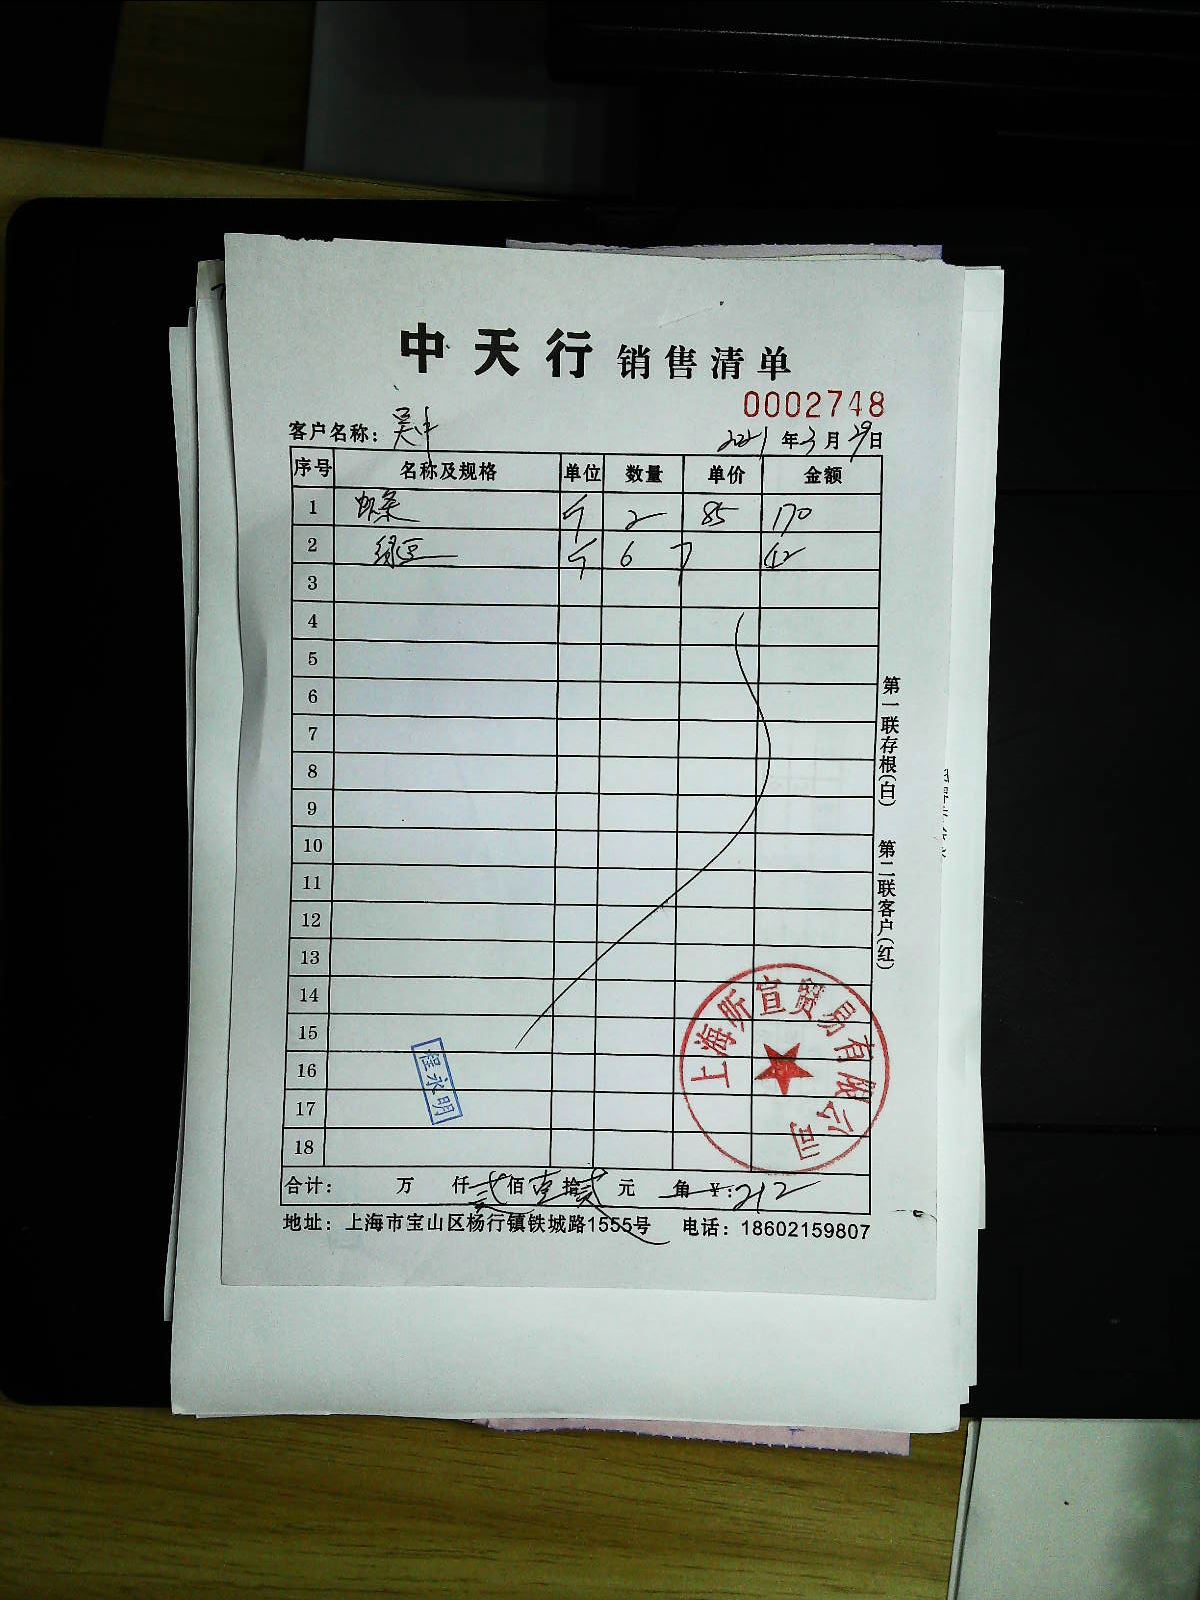 中天行 销售清单
0002748
客户名称： 吴中 2021年3月29日
序号 名称及规格 单位 数量 单价 金额
1 虾条 斤 2 85 170
2 绿豆 斤 6 7 42
3
4
5
6
7
8
9
10
11
12
13
14
15
16
17
18
第一联存根(白) 第二联客户(红)
上海昕宣贸易有限公司
程永明
合计： 万 仟 贰佰壹拾贰元 角 ¥:212
地址：上海市宝山区杨行镇铁城路1555号 电话：18602159807